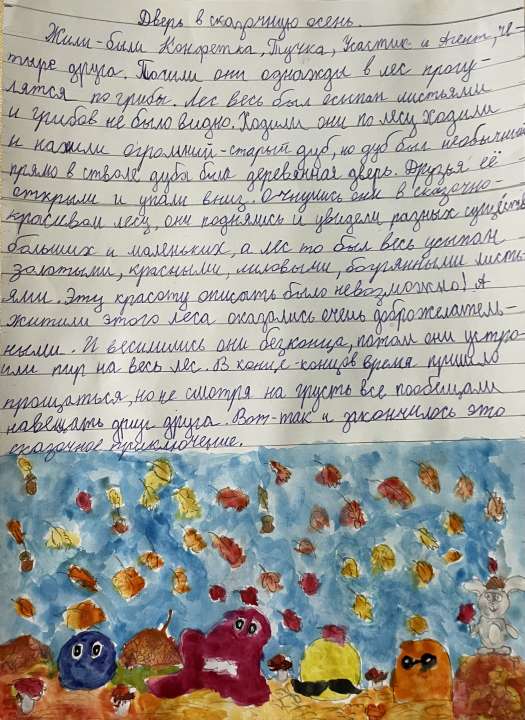 Дверь в сказочную осень.
Жили-были Конфетка, Тучка, Усастик и Агент, че-
тыре друга. Пошли они однажды в лес прогу-
лятся по грибы. Лес весь был осыпан листьями
и грибов не было видно. Ходили они по лесу ходили
и нашли огромний-старый дуб, но дуб был необычный
прямо в стволе дуба была деревянная дверь. Друзья её
открыли и упали вниз. Очнулись они в сказочно-
красивом лесу, они поднялись и увидели разных существ
больших и маленьких, а лес то был весь усыпан
золотыми, красными, лиловыми, богрянными листь-
ями. Эту красоту описать было невозможно! А
жители этого леса оказались очень доброжелатель-
ными. И веселились они безконца, потом они устро-
или пир на весь лес. В конце-концов время пришло
прощаться, но не смотря на грусть все пообещали
навещать друг друга. Вот-так и закончилось это
сказочное приключение.